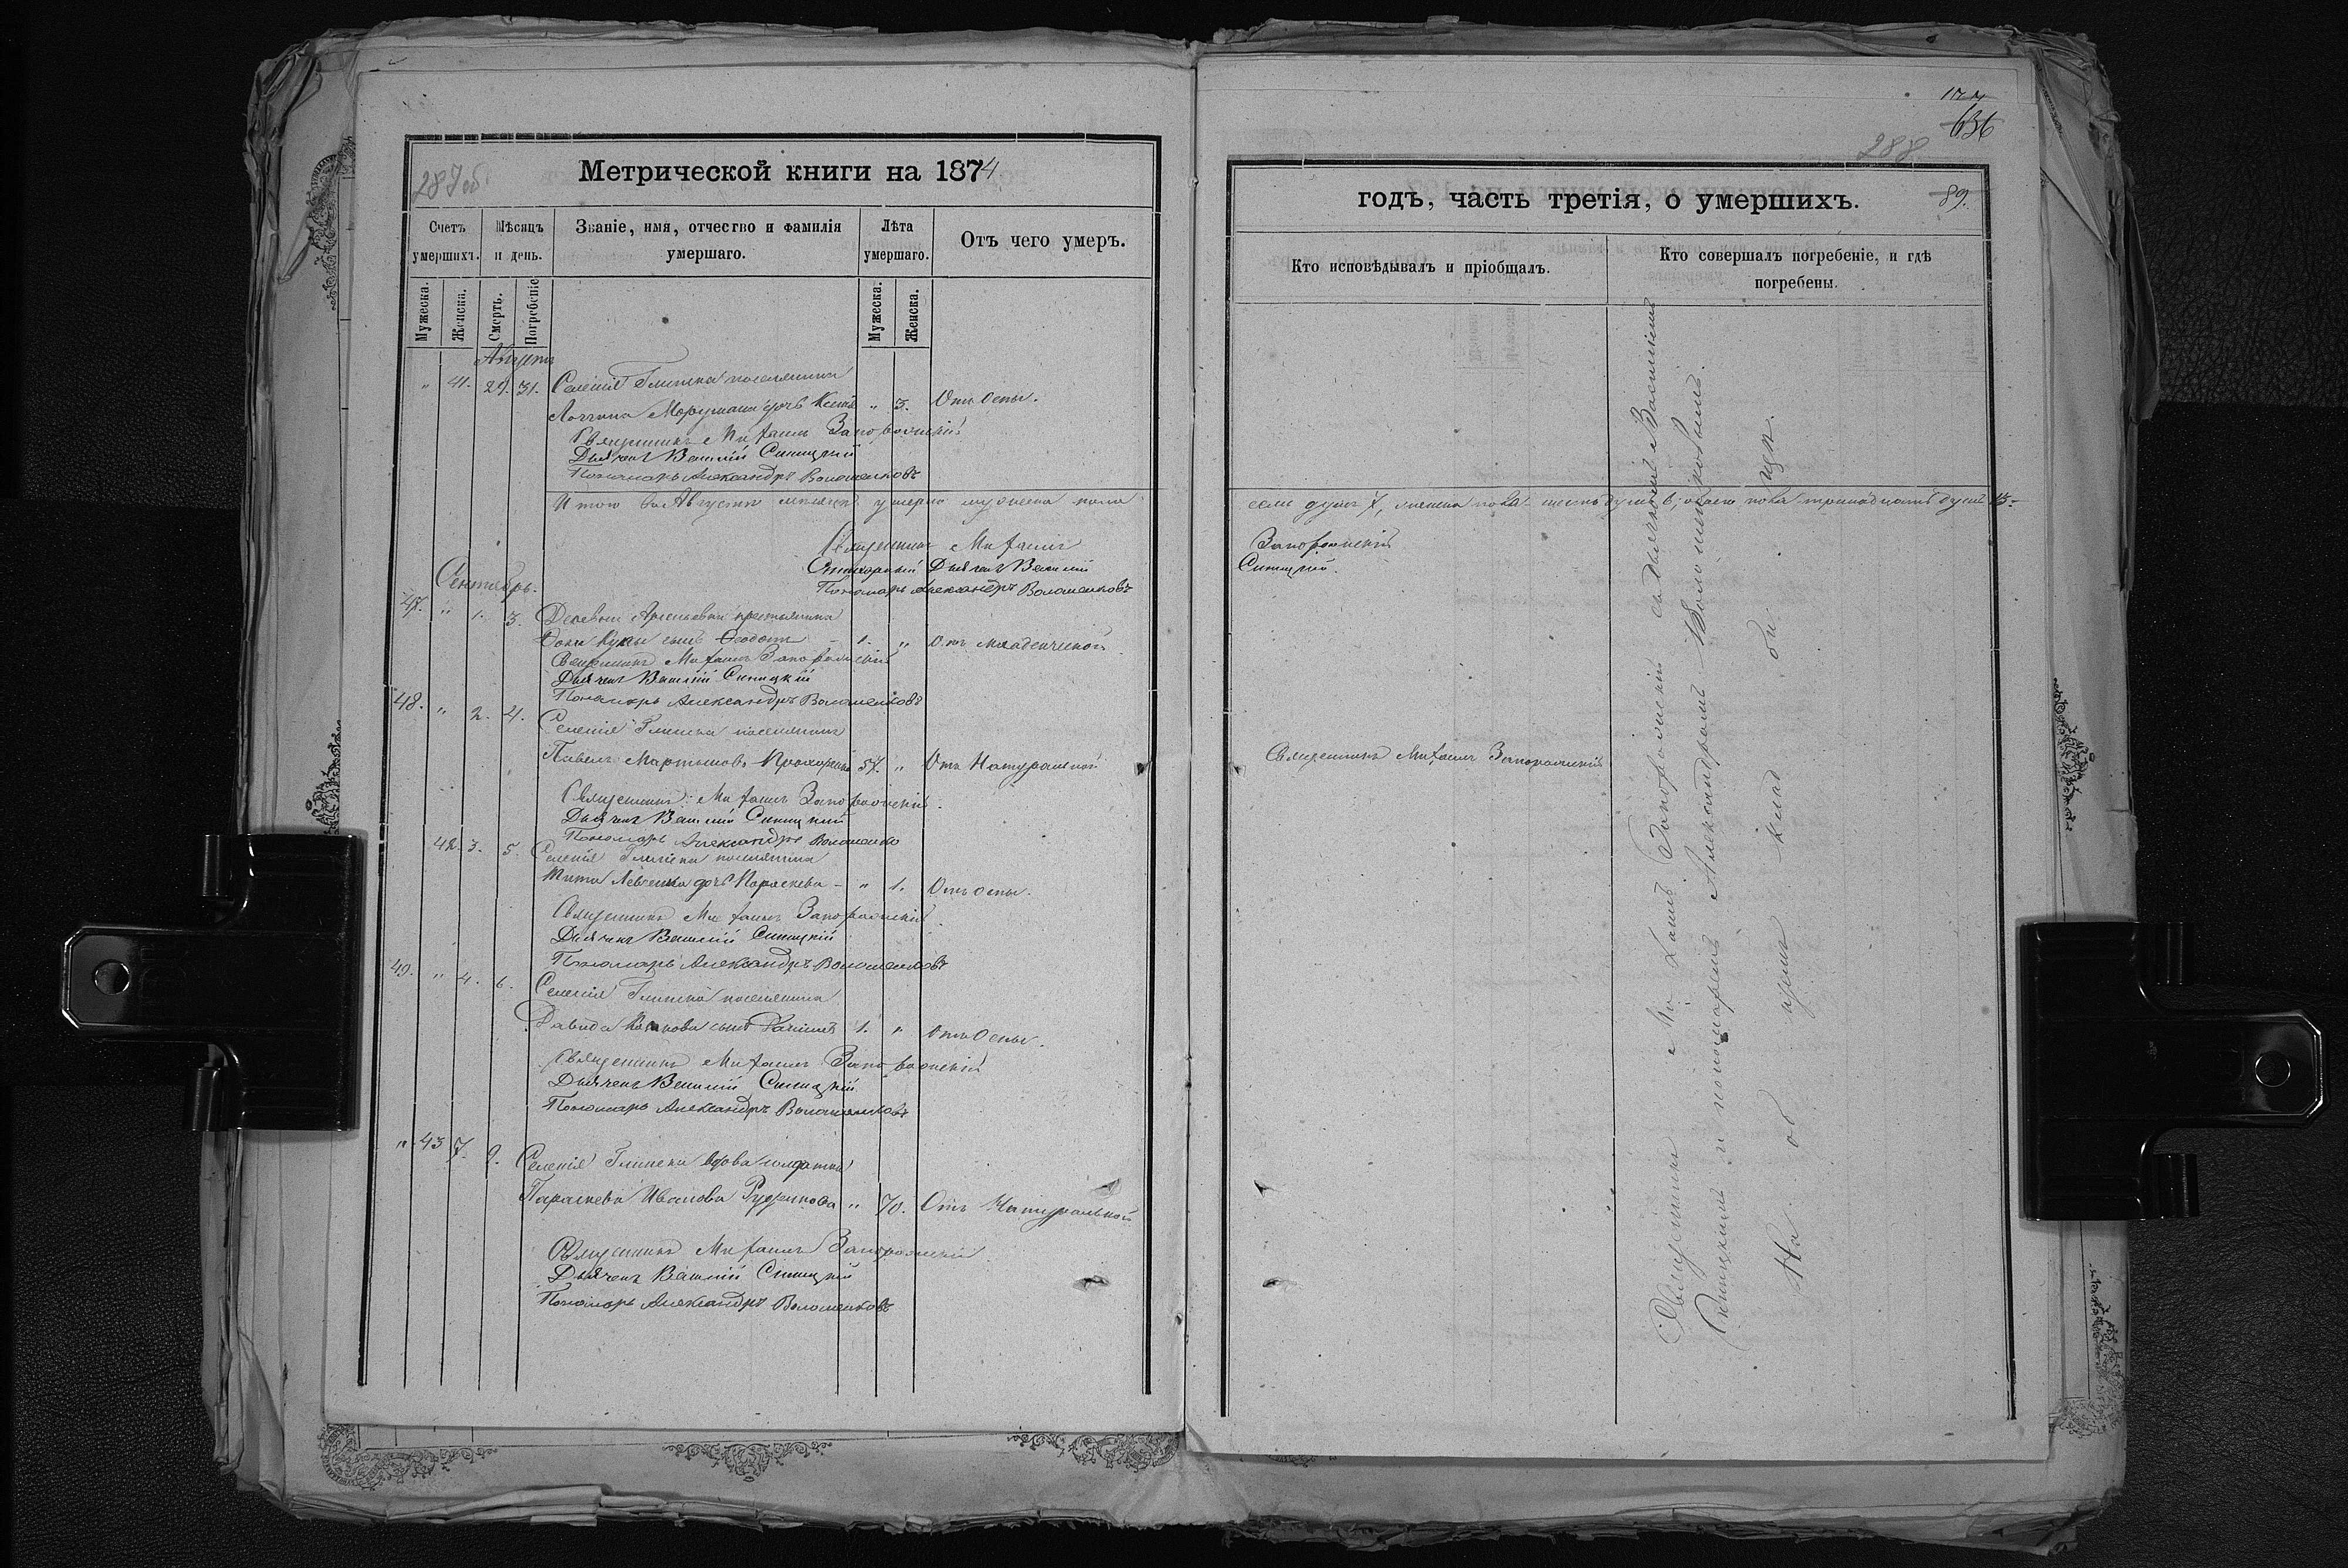 287 об.
Метрической книги на 1874
Счетъ умершихъ.
Мѣсяцъ и день.
Званіе, имя, отчество и фамилія умершаго.
Лѣта умершаго.
Отъ чего умеръ.
Мужеска.
Женска.
Смерть.
Погребеніе
Мужеска.
Женска.
Августъ
" 41. 29. 31. Селенія Глинска поселянина
Логгина дочь " 3. Отъ Оспы.
Священникъ Михаилъ Запорожскій
Дьячекъ Василій Синицкій
Пономарь Александръ Волошенковъ
Итого въ Августѣ мѣсяцѣ умерло мужеска пола
Священникъ Михаилъ
Дьячекъ Василій
Пономарь Александръ Волошенковъ
Сентябрь.
47. " 1. 3. Деревни крестьянина
сынъ Ѳеодотъ 1. " Отъ младенческой
Священникъ Михаилъ Запорожскій
Дьячекъ Василій Синицкій
Пономарь Александръ Волошенковъ
48. " 2. 4. Селенія Глинска поселянинъ
Павелъ Мартиновъ 57. " Отъ Натуральной
Священникъ Михаилъ Запорожскій
Дьячекъ Василій Синицкій
Пономарь Александръ Волошенко
42. 3. 5. Селенія Глинска поселянина
Тита Левченка дочь Параскева - " 1. Отъ оспы.
Священникъ Михаилъ Запорожскій
Дьячекъ Василій Синицкій
Пономарь Александръ Волошенковъ
49. " 4. 6. Селенія Глинска поселянина
Давида сынъ 1. " Отъ Оспы.
Священникъ Михаилъ Запорожскій
Дьячекъ Василій Синицкій
Пономарь Александръ Волошенковъ
" 43 7. 9. Селенія Глинска вдова солдатка
Параскева Иванова Рудникова " 70. Отъ Натуральной
Священникъ Михаилъ Запорожскій
Дьячекъ Василій Синицкій
Пономарь Александръ Волошенковъ
636
288
89.
годъ, часть третія, о умершихъ.
Кто исповѣдывалъ и пріобщалъ.
Кто совершалъ погребеніе, и гдѣ погребены.
семь душъ 7, женска пола шесть душъ 6, обоего пола тринадцать душъ 13-
Запорожскій
Синицкій.
Священникъ Михаилъ Запорожскій
Священникъ Михаилъ Запорожскій съ дьячкомъ Василіемъ
Синицкимъ и пономаремъ Александромъ Волошенковымъ.
На об щемъ клад би щѣ.